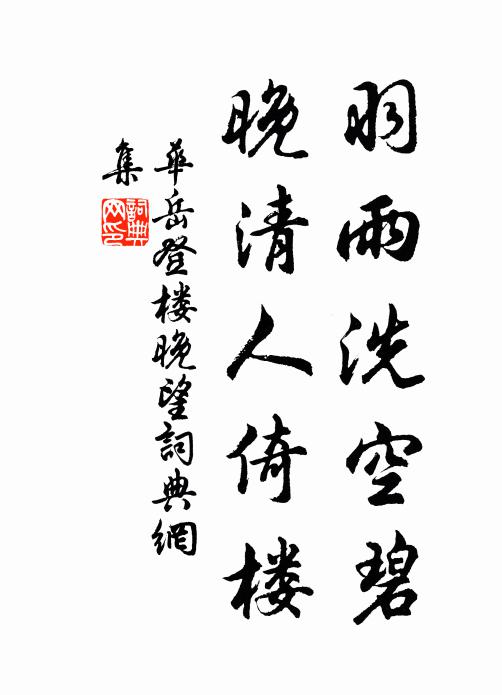 羽雨洗空碧
晚清人倚楼
華岳登楼晚望詞典網
集
詞典網印